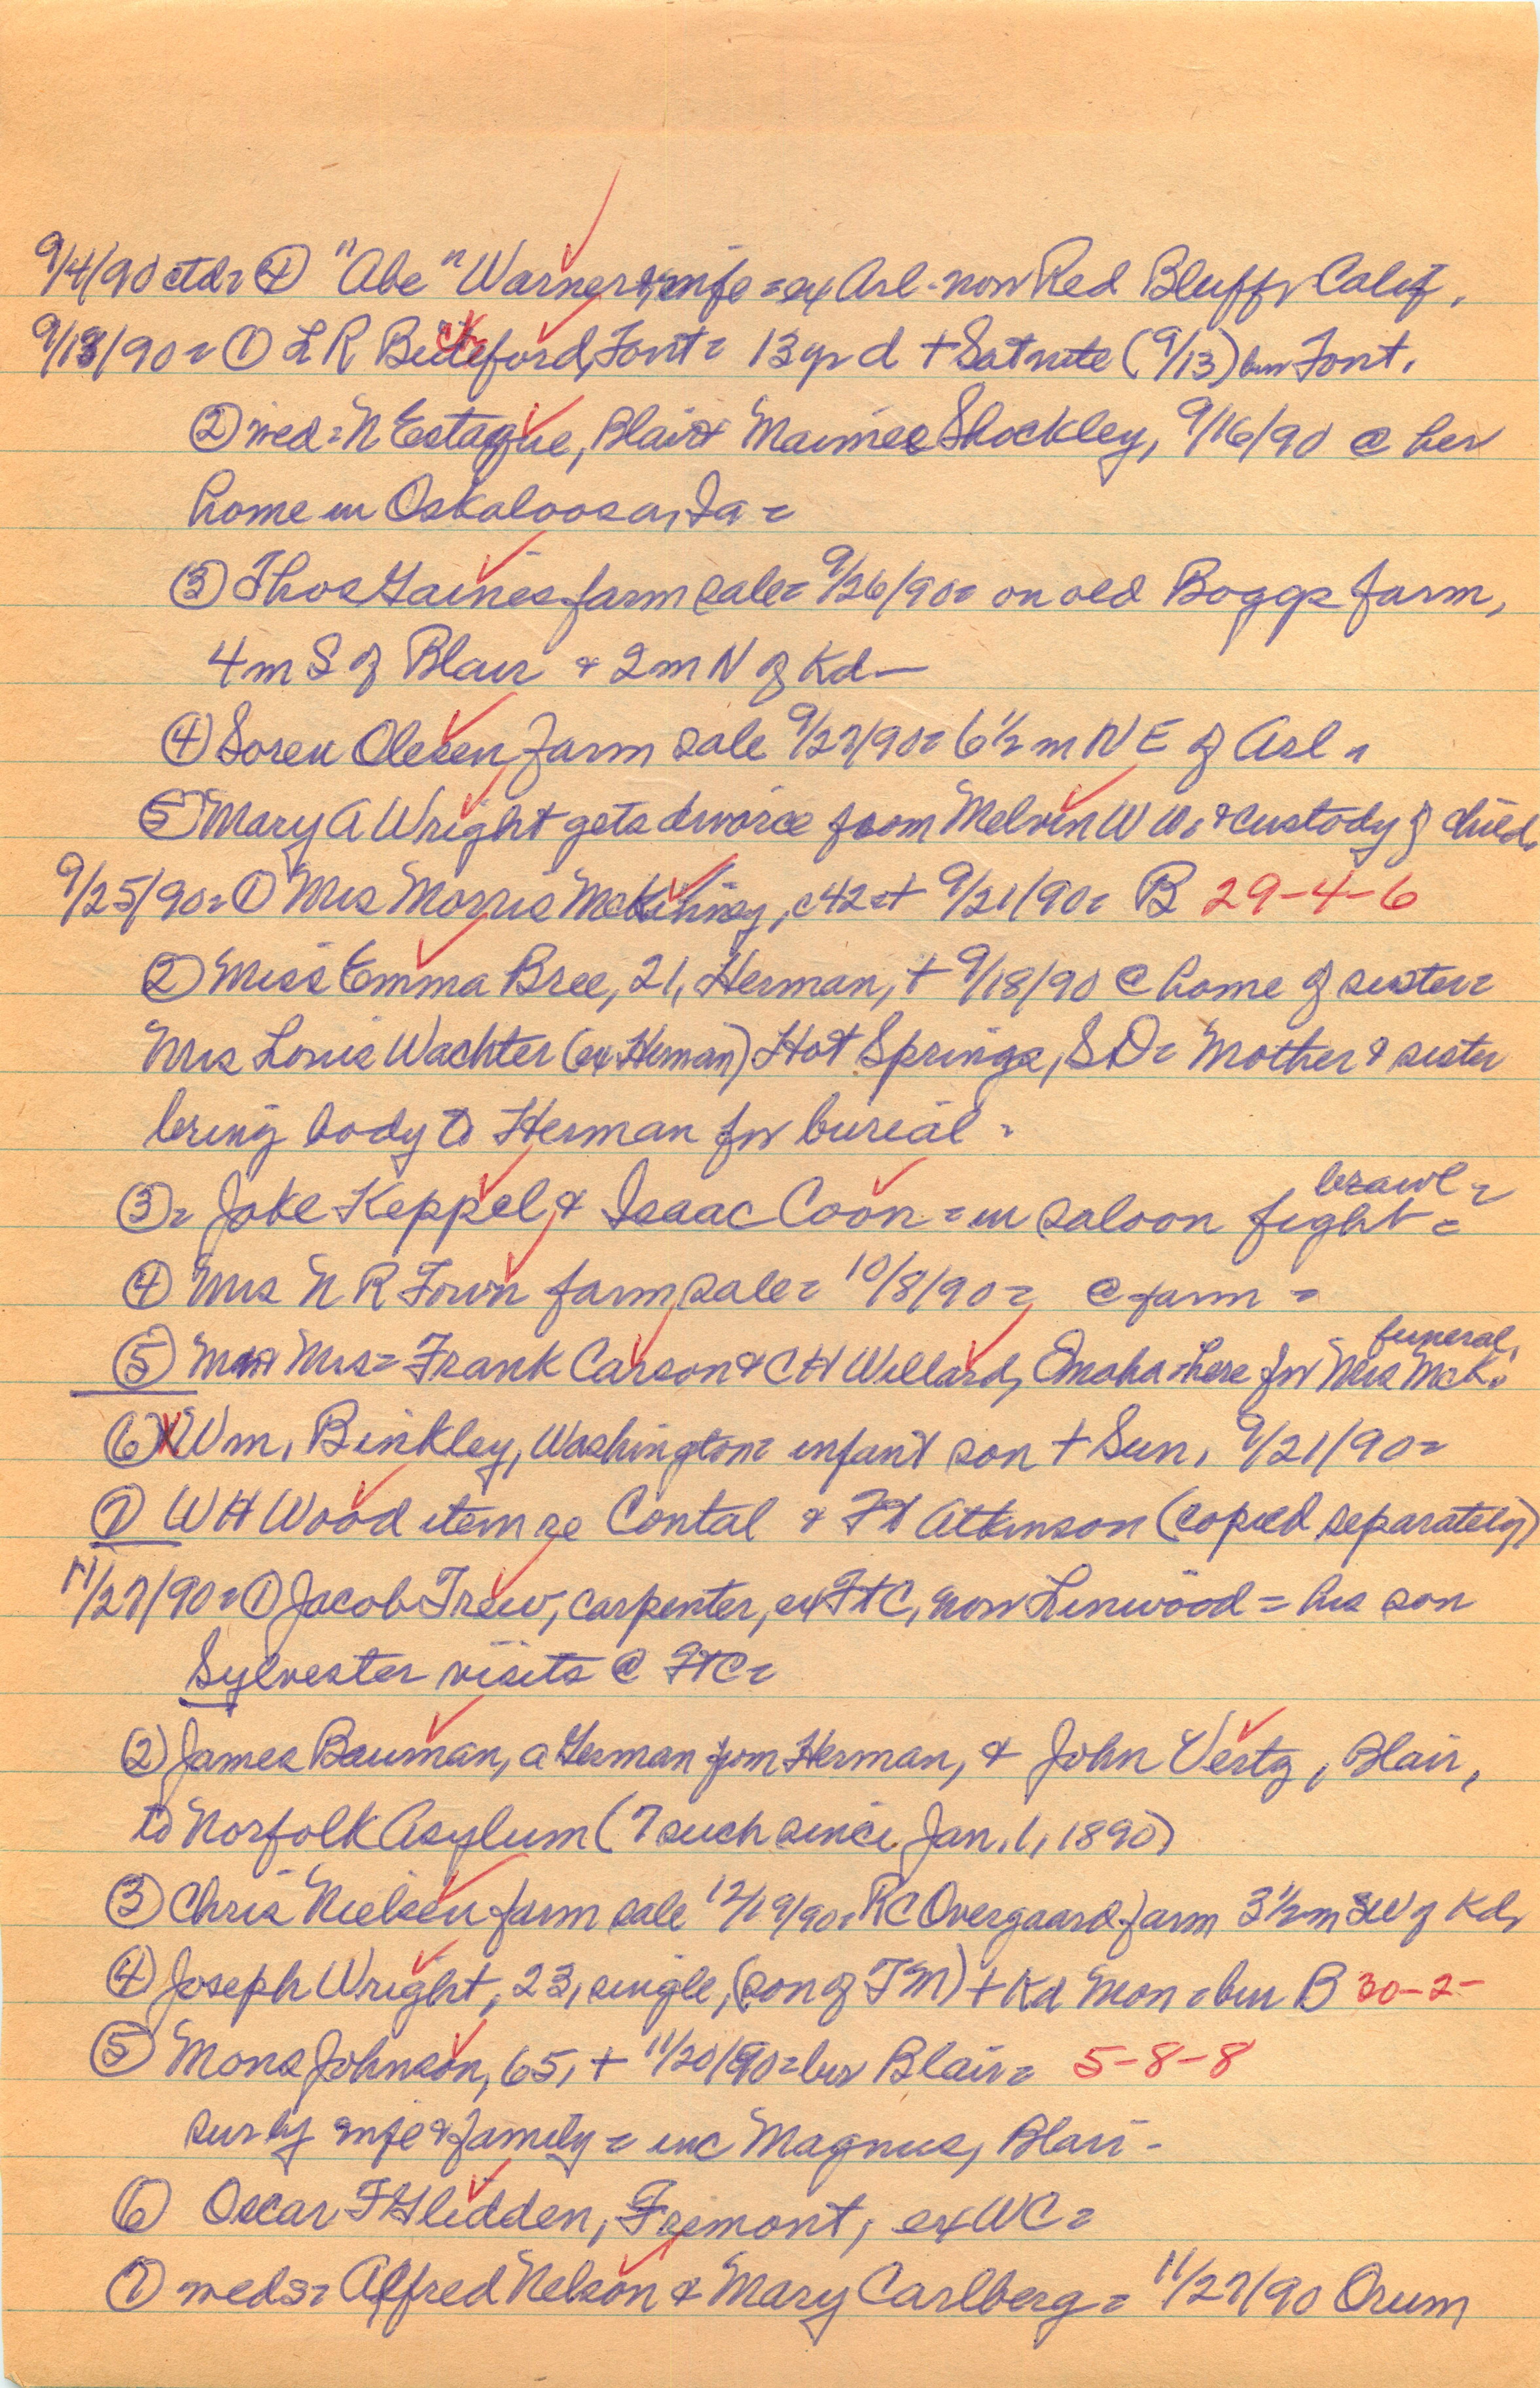 9/4/90 ctd= ④ "Abe" Warner & wife = ex Arl - now Red Bluff, Calif.
9/18/90 = ① L R Font = 13 yr d + Sat nite (9/13) bur Font.
② wed = N Estaque, Blair & Maimee Shockley, 9/16/90 @ her
home in Oskaloosa, Ia =
③ Thos Gaines farm sale = 9/26/90 = on old Boggs farm,
4 m S of Blair & 2 m N of Kd —
④ Soren Olesen farm sale 9/27/90 = 6 1/2 m N E of Arl.
⑤ Mary A Wright gets divorce from Melvin W W. & custody of child.
9/25/90 = ① Mrs Morris McKinney, c42 = + 9/21/90 = B 29-4-6
② Miss Emma Bree, 21, Herman, + 9/18/90 @ home of sister =
Mrs Louis Wachter (ex Herman) Hot Springs, SD = Mother & sister
bring body to Herman for burial -
brawl =
③ = Jake Keppel & Isaac Coon = in saloon fight =
④ Mrs N R Town farm sale = 10/8/90 = @ farm =
funeral.
⑤ Mr & Mrs = Frank Carson & C H Willard, Omaha = here for Mrs McK.
⑥ Wm. Binkley, Washington = infant son + Sun. 9/21/90 =
⑦ W H Wood item re Contal & Ft Atkinson (copied separately)
11/27/90 = ① Jacob Trew, carpenter, ex Ft C, now Linwood = his son
Sylvester visits @ Ft C =
② James Bauman, a German from Herman, & John Vertz, Blair,
to Norfolk Asylum (7 such since Jan. 1, 1890)
③ Chris Nielsen farm sale 12/19/90 = R C Overgaard farm 3 1/2 m SW of Kd,
④ Joseph Wright, 23, single, (son of T M) + Kd Mon = bur B 30-2-
⑤ Mons Johnson, 65, + 11/20/90 = bur Blair = 5-8-8
sur by wife & family = inc Magnus, Blair -
⑥ Oscar F Glidden, Fremont, ex WC =
⑦ weds = Alfred Nelson & Mary Carlberg = 11/27/90 Orum